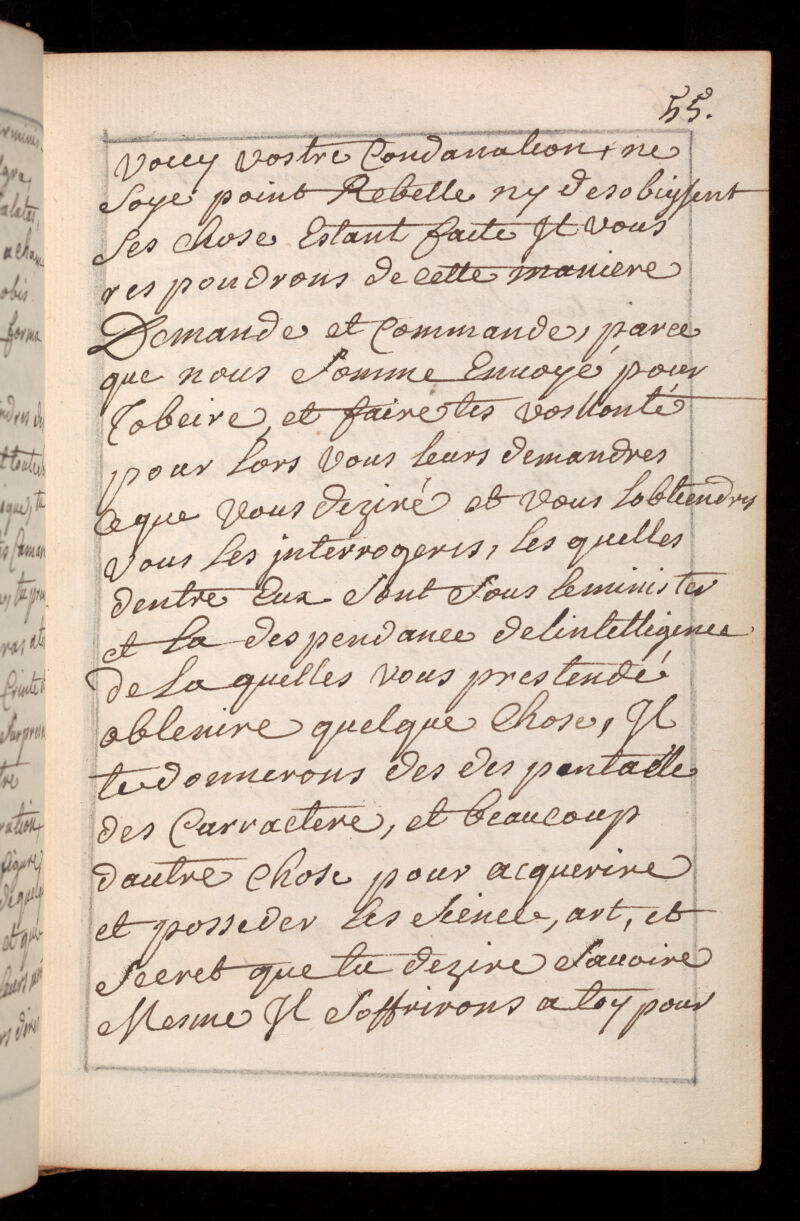 55.
Vocy Vostre Condanation, ne
soye point Rebelle ny desobiyssent
ses chose Estant faite Jl vous
respondrons de cette maniere
Demande et Commande, parce
que nous somme Envoyé pour
tobeire, et faire tes vosllonté
pour lors Vous leurs demandres
ce que Vous deziré et Vous lobtiendres
Vous les jnterrogeres, les quelles
dentre Eux sont sous leminister
et La despendance delintelligence
de La quelles vous prestendé
obtenire quelque chose, Jl
te donnerons des des pentacle
des Carractere, et beaucoup
dautre chose pour acquerire
et posseder les science, art, et
secret que tu dezire sauoire
Mesme Jl soffrirons a toy pour